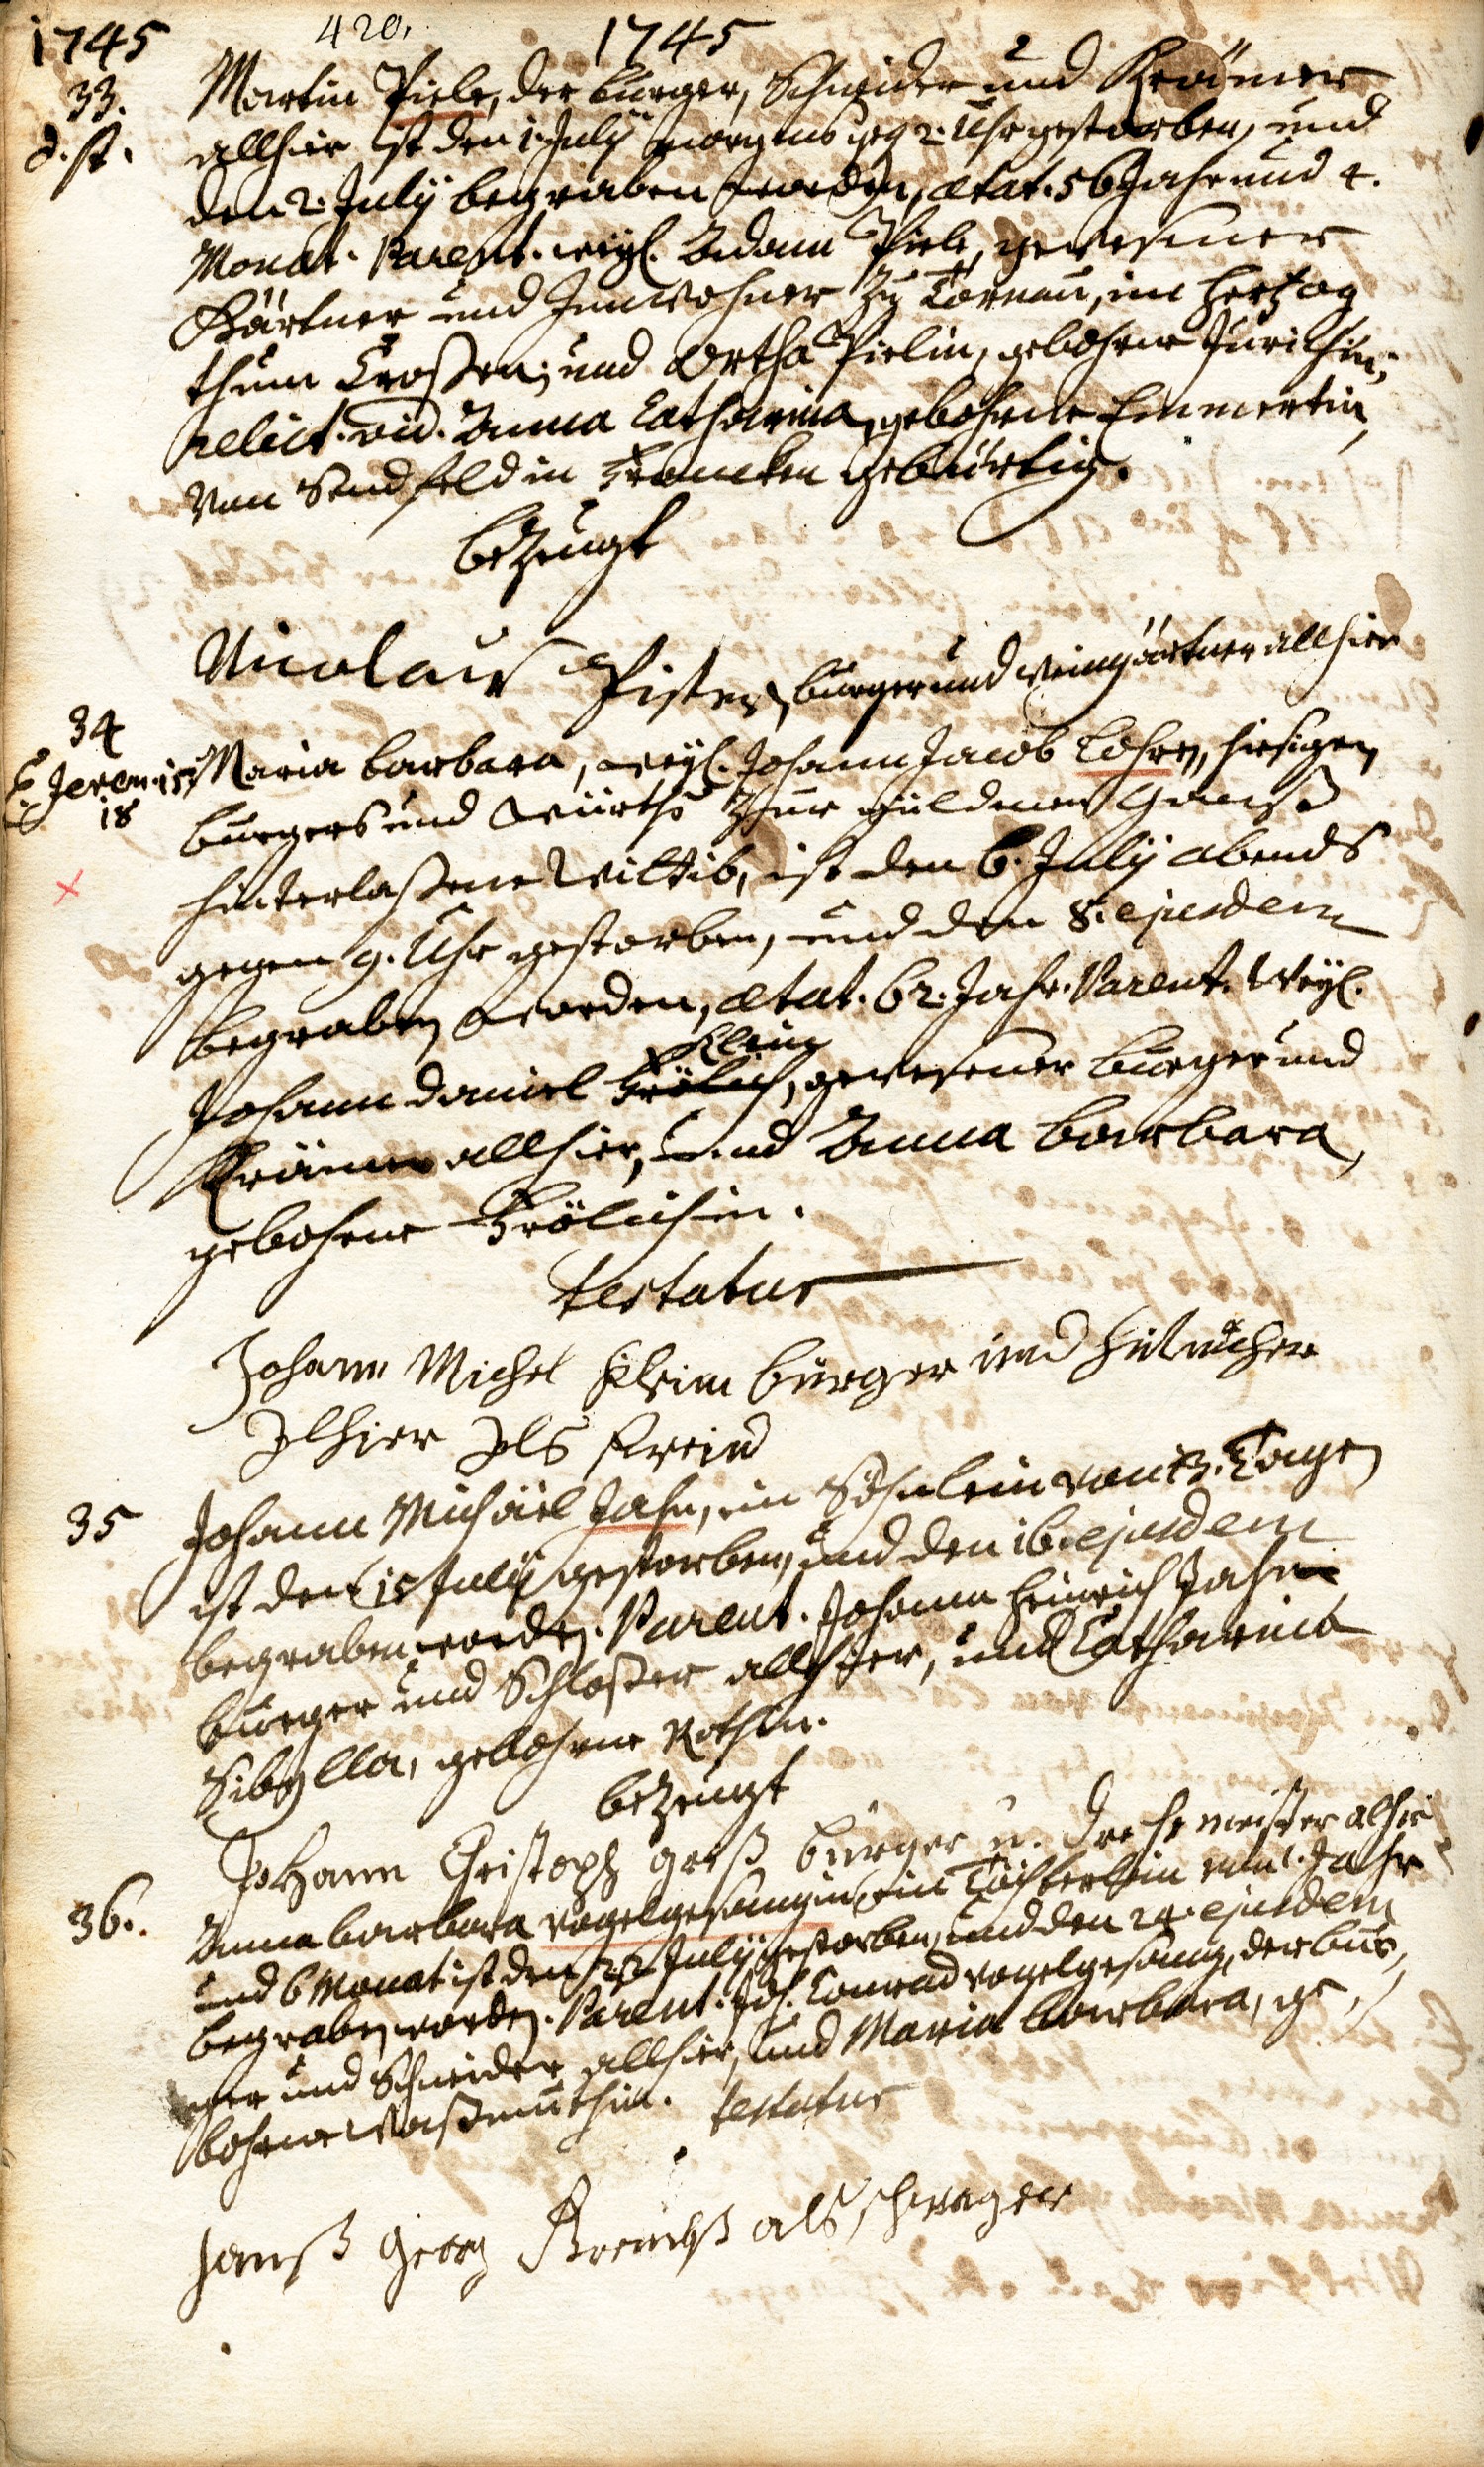 1745
420.
1745
33.
d. st.
Martin Piele, der burger, Schneider und Krämer
allhier ist den 1. July morgens geg. 2. Uhr gestorben, und
den 2. July begraben worden, ætat. 56 Jahr und 4.
Monat. Parent. weyl. Adam Piele, gewesener
Gärtner und Innwohner zu Tornau, im Hertzog
thum Croßen; und Ortha Pielin, gebohrne
relict. vid. Anna Catharina, gebohrne Emmertin,
von Sendfeld in Francken gebürtig.
bezeugt
Nicolaus Pister, burger und weingärtner allhier
34
Jerem. 15,
18
Maria barbara, weyl. Johann Jacob Löhrs, hiesigen
burgers und Würths zur güldenen Ganß
hinterlaßene Wittib, ist den 6. July abends
gegen 9. Uhr gestorben, und den 8. ejusdem
begraben worden, ætat. 62. Jahr. Parent. Weyl.
Klein
Johann Daniel Frölich, gewesener burger und
Krämer allhier, und Anna barbara,
gebohrne Frölichin.
testatur
Johann Michel Klein burger und
Alhier Als freind
35
Johann Michäel Jahn, ein Söhnlein von 13. Tagen
ist den 15 July gestorben, und den 16. ejusdem
begraben worden. Parent. Johann Heinrich Jahn
burger und Schloßer allhier, und Catharina
Sibylla, gebohrne Rothin.
bezeugt
Johann Christoph groß burger u. meister alhie
36.
Anna barbara Vogelgesangin, ein Töchterlein von 1. Jahr
und 6 Monat ist den 22 July gestorben, und den 24. ejusdem
begraben worden. Parent. Joh. Conrad Vogelgesang, der bur,,
ger und Schneider allhier, und Maria barbara, ge,,
bohrne Waßmuthin. testatur
Hanß Georg als schwager